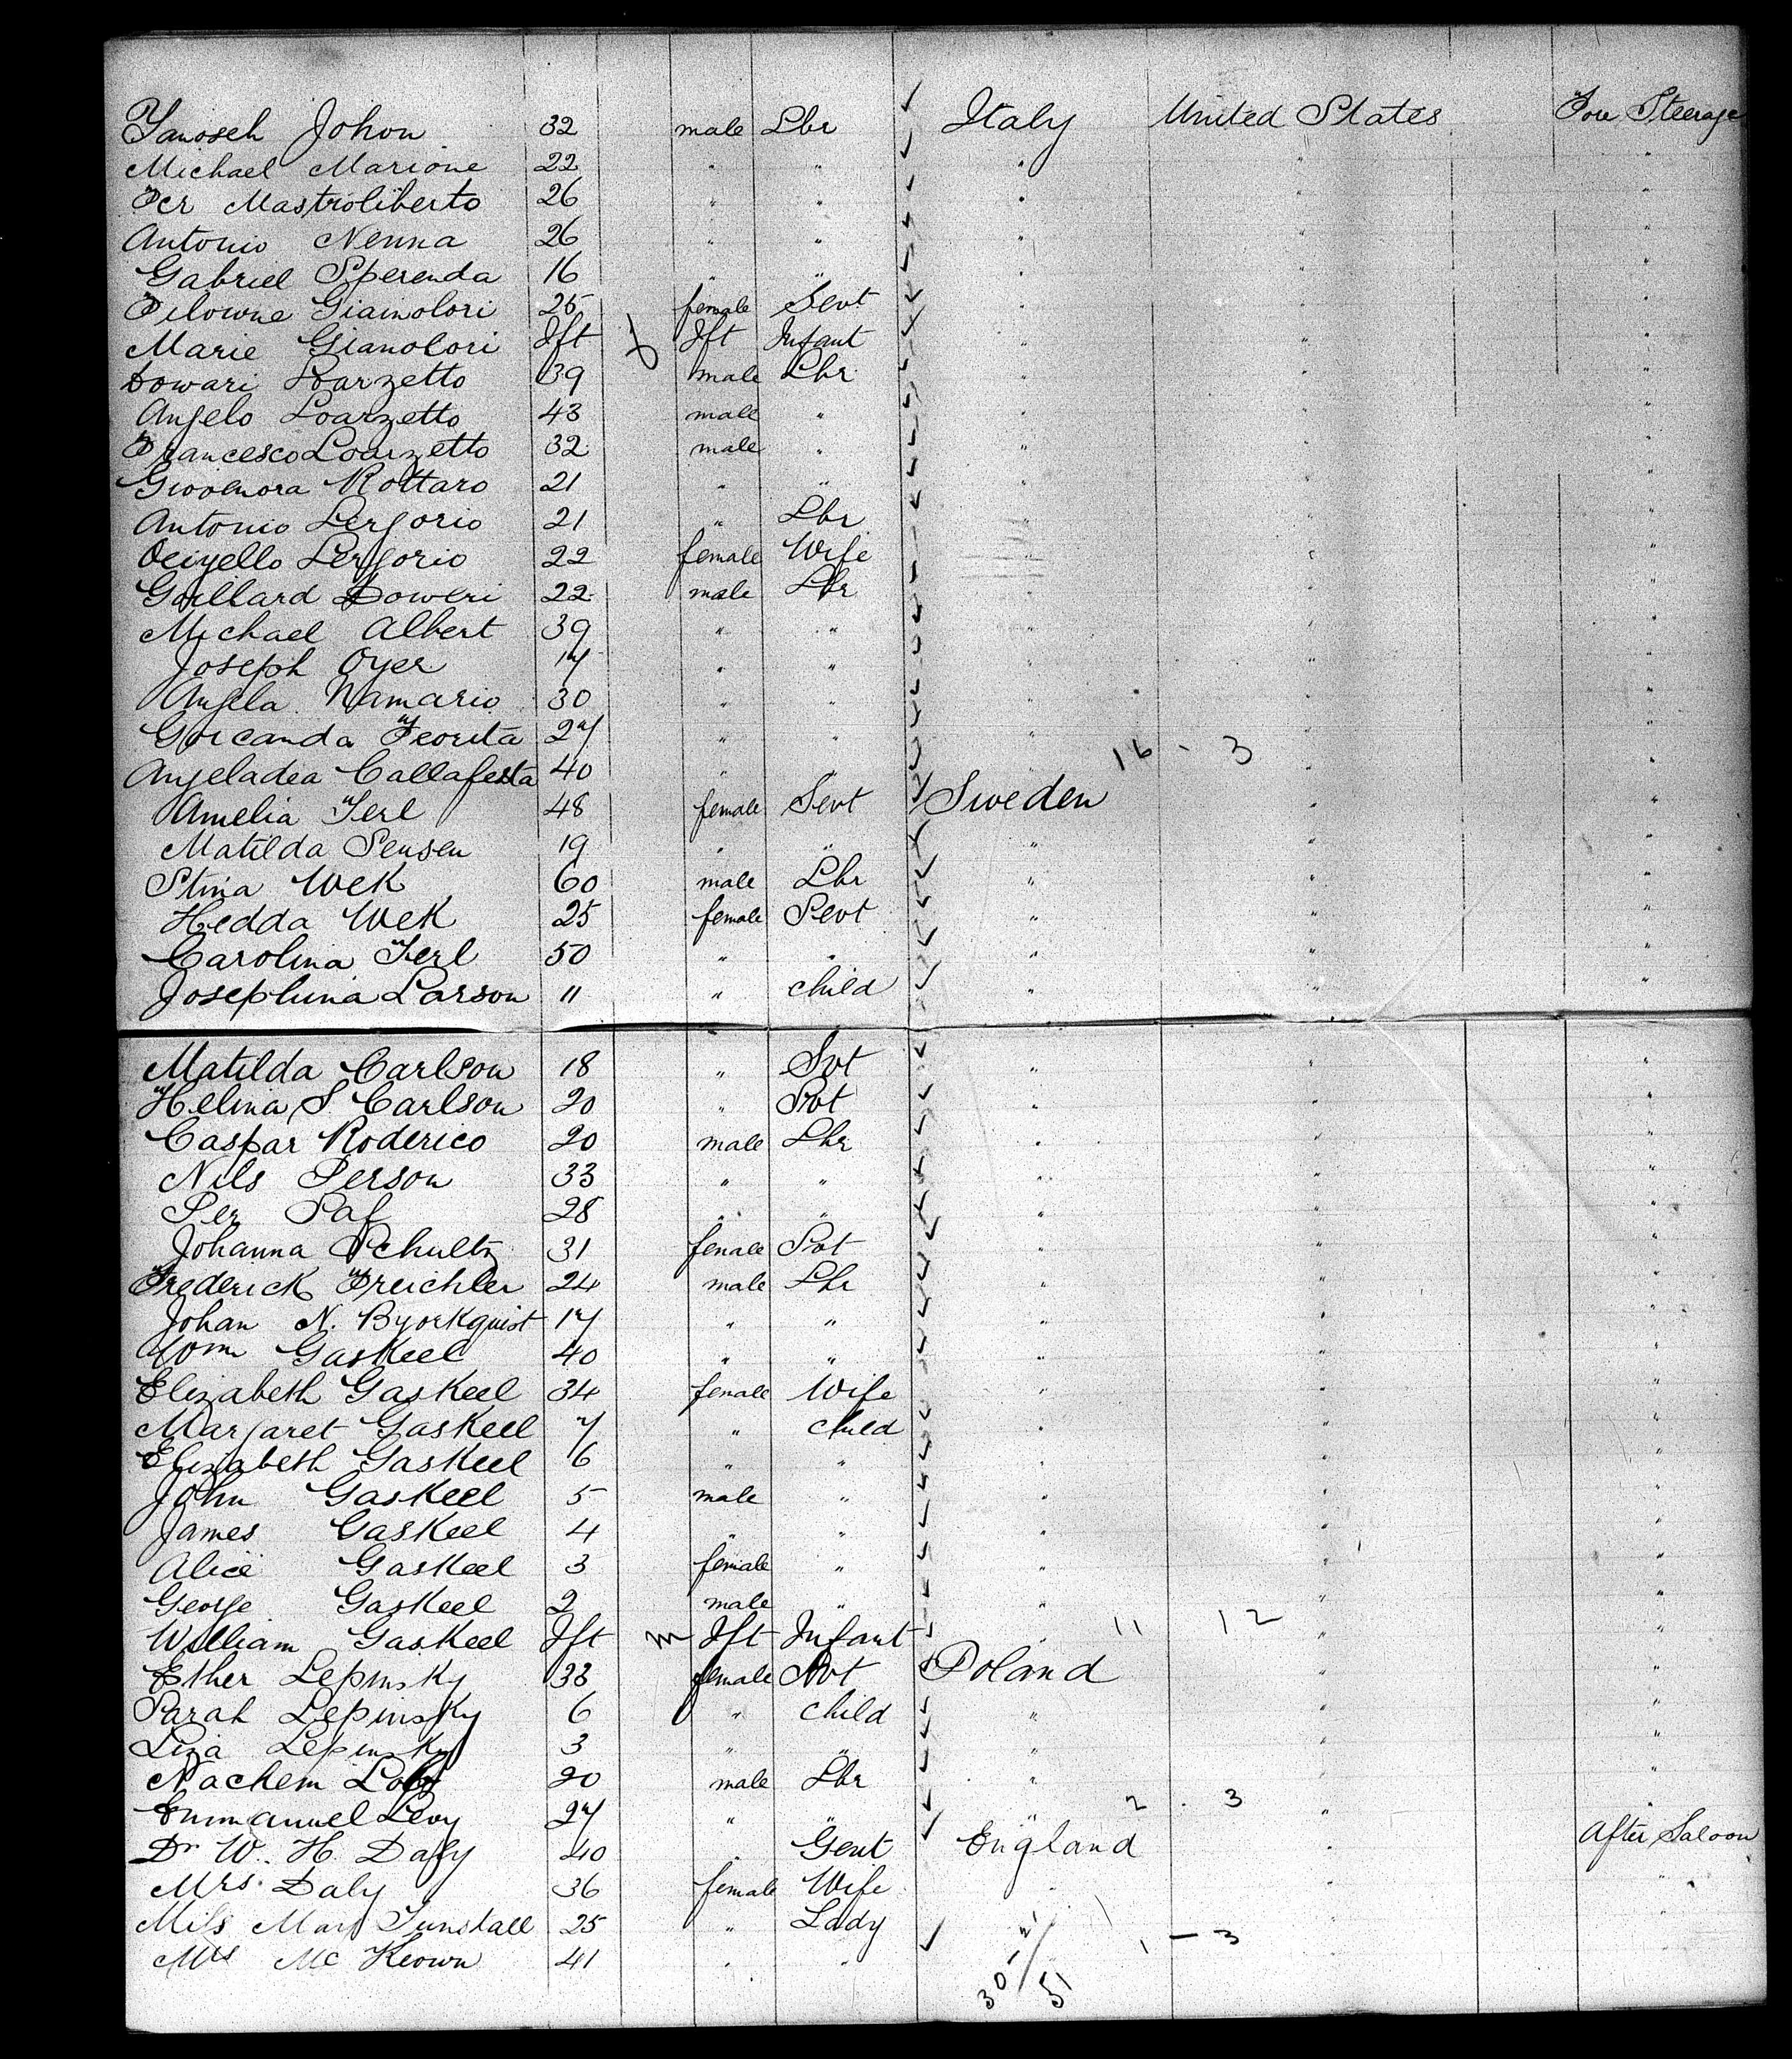 Yanosch Johon 32 male Lbr ✓ Italy United States Fore Steerage
Michael Marione 22 " " ✓ " " "
Per Mastroliberto 26 " " ✓ " " "
Antonio Nenna 26 " " ✓ " " "
Gabriel Sperenda 16 " " ✓ " " "
Giainolori 25 female Sevt ✓ " " "
Marie Gianolori Ift f Ift Infant ✓ " " "
Dowari Loarzetto 39 male Lbr ✓ " " "
Angelo Loarzetto 43 male " ✓ " " "
Francesco Loarzetto 32 male " ✓ " " "
Rottaro 21 " " ✓ " " "
Antonio Lergorio 21 " Lbr ✓ " " "
Lergorio 22 female Wife ✓ " " "
Gaillard Doweri 22 male Lbr ✓ " " "
Michael Albert 39 " " ✓ " " "
Joseph Oyer 17 " " ✓ " " "
Angela Namario 30 " " ✓ " " "
Goicanda Feorita 27 " " ✓ " " "
Angeladea Callafesta 40 " " ✓ " 16 - 3 " "
Amelia Ferl 48 female Sevt ✓ Sweden " "
Matilda Sensen 19 " " ✓ " " "
Stina Wek 60 male Lbr ✓ " " "
Hedda Wek 25 female Sevt ✓ " " "
Carolina Ferl 50 " " ✓ " " "
Josephina Larson 11 " child ✓ " " "
Matilda Carlson 18 " Svt ✓ " " "
Helina S Carlson 20 " Svt ✓ " " "
Caspar Roderico 20 male Lbr ✓ " " "
Nils Person 33 " " ✓ " " "
Per Paf 28 " " ✓ " " "
Johanna Schultz 31 female Svt ✓ " " "
Frederick Freichler 24 male Lbr ✓ " " "
Johan N. Byorkquist 17 " " ✓ " " "
Wm Gaskeel 40 " " ✓ " " "
Elizabeth Gaskeel 34 female Wife ✓ " " "
Margaret Gaskeel 7 " child ✓ " " "
Elizabeth Gaskeel 6 " " ✓ " " "
John Gaskeel 5 male " ✓ " " "
James Gaskeel 4 " " ✓ " " "
Alice Gaskeel 3 female " ✓ " " "
George Gaskeel 2 male " ✓ " " "
William Gaskeel Ift m Ift Infant ✓ " 11 12 " "
Esther Lepinsky 33 female Svt ✓ Poland " "
Sarah Lepinsky 6 " child ✓ " " "
Lina Lepinsky 3 " " ✓ " " "
Nachem 20 male Lbr ✓ " " "
Emmanuel Levy 27 " " ✓ " 2 . 3 " "
Dr W. H. Daly 40 " Gent ✓ England " After Saloon
Mrs. Daly 36 female Wife " " "
Miss Mary Tunstall 25 " Lady " " "
Mrs Mc Keown 41 " " ✓ 1 - 3
30 - 21 / 51